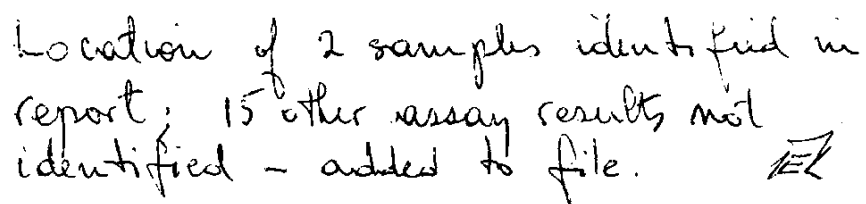 Location of 2 samples identified in
report; 15 other assay results not
identified - added to file.